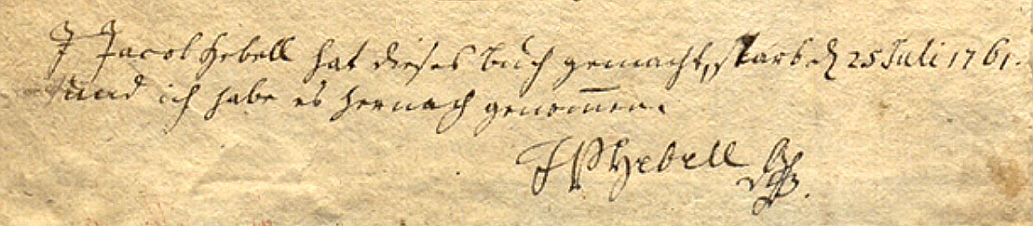 J Jacob Hebell hat dieses buch gemacht, starb d 25 Juli 1761.
und ich habe es hernach genom̅en.
J P Hebell